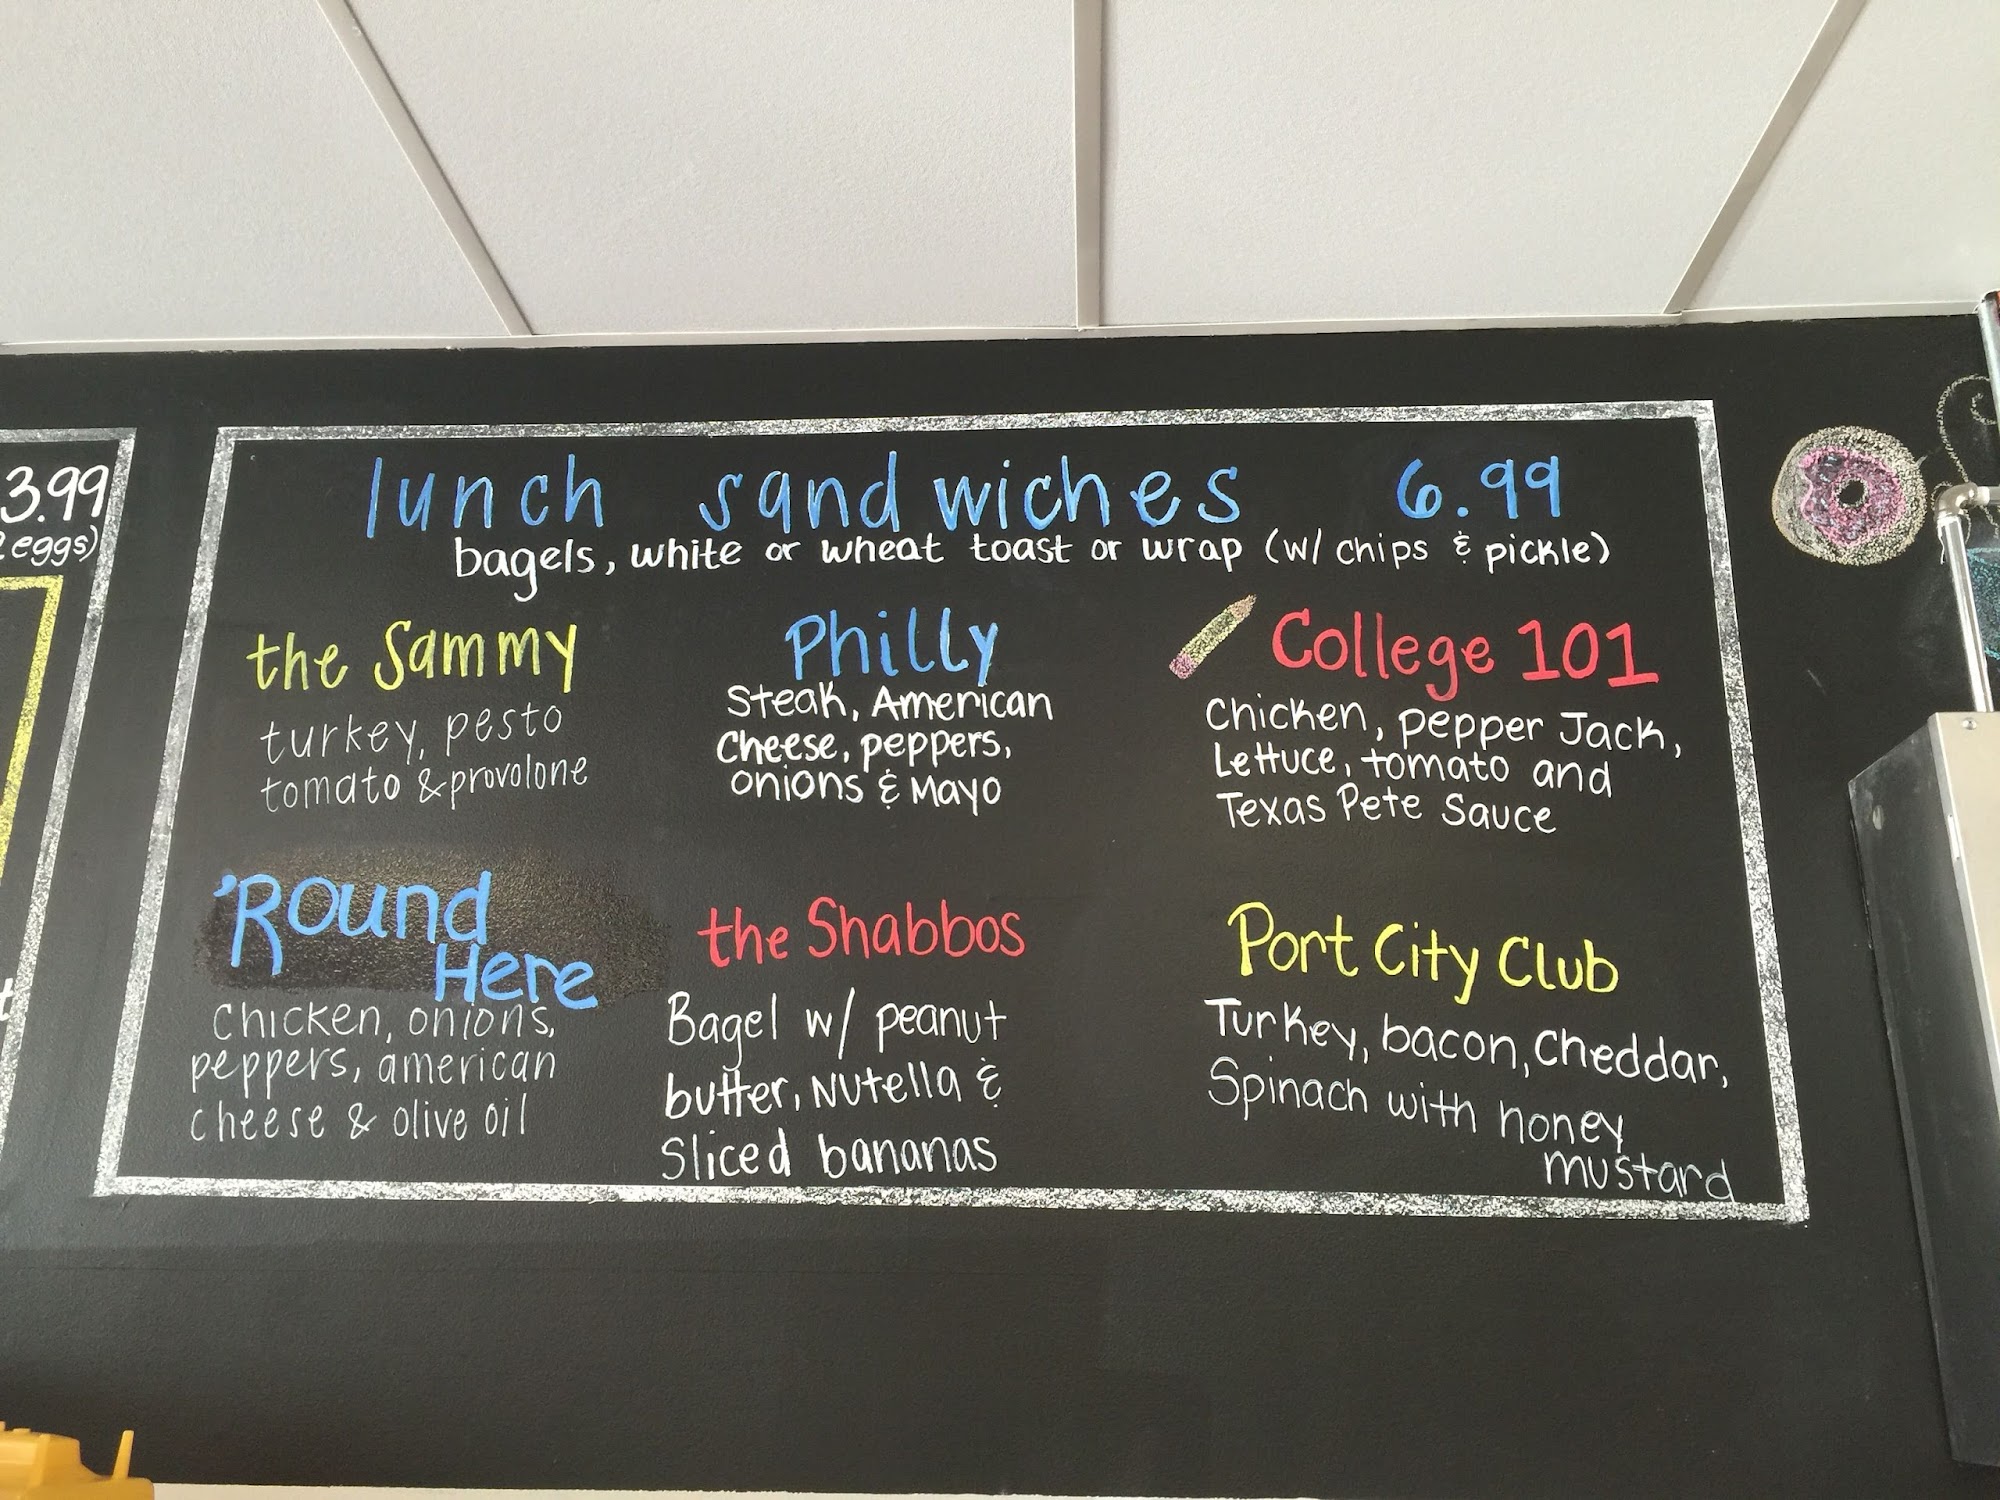 3.99
eggs)
lunch sandwiches 6.99
bagels, white or wheat toast or wrap (w/ chips & pickle)
the Sammy
turkey, pesto
tomato & provolone
Philly
Steak, American
Cheese, peppers,
onions & Mayo
College 101
Chicken, pepper Jack,
Lettuce, tomato and
Texas Pete Sauce
'Round
Here
Chicken, onions,
peppers, american
cheese & olive oil
the Shabbos
Bagel w/ peanut
butter, Nutella &
Sliced bananas
Port City Club
Turkey, bacon, Cheddar,
Spinach with honey
mustard